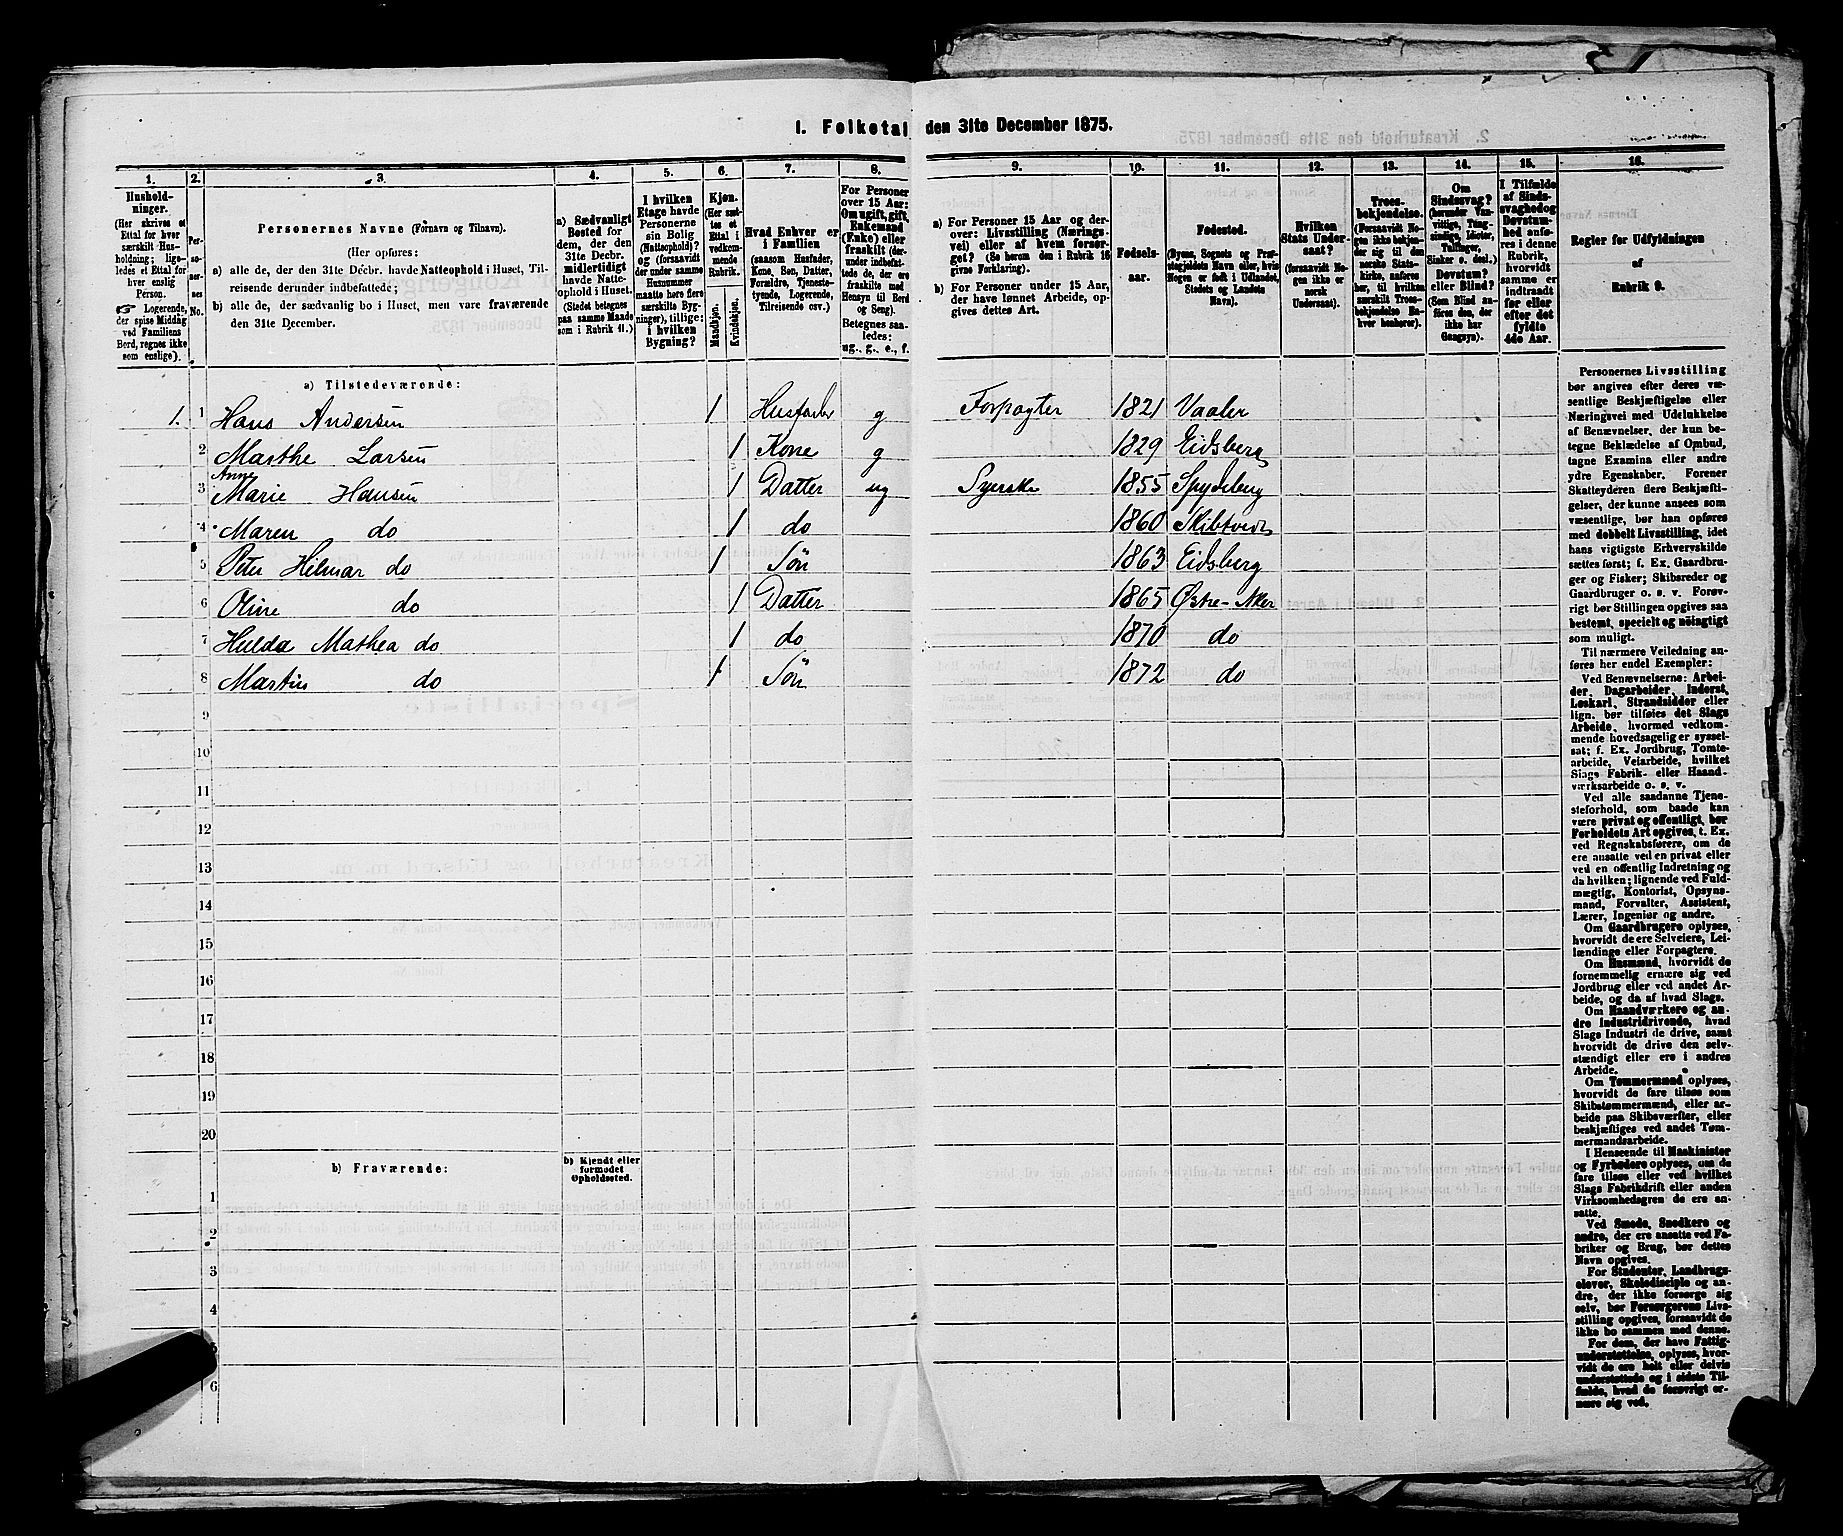 1. Folketal den 31te December 1875.
1. 2. 3. 4. 5. 6. 7. 8. 9. 10. 11. 12. 13. 14. 15. 16.
Husholdninger.
(Her skrives et
Ettal for hver
særskilt Husholdning;
ligeledes et Ettal for
hver enslig
Person.
☞ Logerende,
der spise Middag
ved Familiens
Bord, regnes ikke
som enslige).
Personernes No.
Personernes Navne (Fornavn og Tilnavn).
(Her opføres:
a) alle de, der den 31te Decbr. havde Natteophold i Huset, Tilreisende derunder indbefattede;
b) alle de, der sædvanlig bo i Huset, men vare fraværende
den 31te December.
a) Sædvanligt
Bosted for
dem, der den
31te Decbr.
midlertidigt
havde Natteophold i Huset.
(Stedet betegnes
paa samme Maade
som i Rubrik 11.)
I hvilken
Etage havde
Personerne
sin Bolig
(Natteophold)?
og (forsaavidt
der under samme
Husnummer
maatte høre flere
særskilte Bygninger), tillige:
i hvilken
Bygning?
Kjøn.
(Her sættes et
Ettal i
vedkommende
Rubrik.
Mandkjøn.
Kvindekjøn.
Hvad Enhver er
i Familien
(saasom Husfader,
Kone, Søn, Datter,
Forældre, Tjenestetyende, Logerende,
Tilreisende osv.)
For Personer
over 15 Aar:
Om ugift, gift,
Enkemand
(Enke) eller
fraskilt (derunder indbefattede de, der ere
fraskilte med
Hensyn til Bord
og Seng).
Betegnes saaledes:
ug., g., e., f.
a) For Personer 15 Aar og derover: Livsstilling (Næringsvei) eller af hvem forsørget? (Se herom den i Rubrik 16
givne Forklaring).
b) For Personer under 15 Aar,
der have lønnet Arbeide, opgives dettes Art.
Fødselsaar.
Fødested.
(Byens, Sognets og Præstegjeldets Navn eller, hvis
Nogen er født i Udlandet,
Stedets og Landets
Navn).
Hvilken
Stats Undersaat?
(forsaavidt Nogen ikke er
norsk
Undersaat).
Troesbekjendelse.
(Forsaavidt Nogen ikke bekjender sig til den
norske Statskirke, anføres
her, til hvilken
særskilt Troesbekjendelse Enhver henhører).
Om
Sindssvag?
(herunder Vanvittige, Tungsindige, Idioter,
Tullinger,
Sinker o. desl.)
Døvstum?
eller Blind?
(Som Blind anføres den, der
ikke har
Gangsyn).
I Tilfælde
af Sindssvaghed og
Døvstumhed anføres i denne
Rubrik,
hvorvidt
samme er
indtraadt
før eller
efter det
fyldte
4de Aar.
Regler for Udfyldningen
af
Rubrik 9.
a) Tilstedeværende:
1. 1 Hans Andersen 1 Husfader g Forpagter 1821 Vaaler
2 Marthe Larsen 1 Kone g 1829 Eidsberg
3 Anne Marie Hansen 1 Datter ug Syerske 1855 Spydeberg
4 Maren do 1 do 1860 Skibtvedt
5 Peter Helmar do 1 Søn 1863 Eidsberg
6 Oline do 1 Datter 1865 Østre-Aker
7 Hulda Mathea do 1 do 1870 do
8 Martin do 1 Søn 1872 do
9
10
11
12
13
14
15
16
17
18
19
20
b) Fraværende:
b) Kjendt eller
formodet
Opholdssted.
1
2
3
4
6
Personernes Livsstilling
bør angives efter deres væsentlige Beskjæftigelse eller
Næringsvei med Udelukkelse
af Benævnelser, der kun betegne Beklædelse af Ombud,
tagne Examina eller andre
ydre Egenskaber. Forener
Skatteyderen flere Beskjæftigelser, der kunne ansees som
væsentlige, bør han opføres
med dobbelt Livsstilling, idet
hans vigtigste Erhvervskilde
sættes først; f. Ex. Gaardbruger og Fisker; Skibsreder og
Gaardbruger o. s. v. Forøvrigt bør Stillingen opgives saa
bestemt, specielt og nöiagtigt
som muligt.
Til nærmere Veiledning anføres her endel Exempler:
Ved Benævnelserne: Arbeider, Dagarbeider, Inderst,
Løskarl, Strandsidder eller
lign. bør tilføies det Slags
Arbeide, hvormed vedkommende hovedsagelig er sysselsat; f. Ex. Jordbrug, Tomtearbeide, Veiarbeide, hvilket
Slags Fabrik- eller Haandværksarbeide o. s. v.
Ved alle saadanne Tjenesteforhold, som baade kan
være privat og offentligt, bør
Forholdets Art opgives, t. Ex.
ved Regnskabsførere, om de
ere ansatte ved en privat eller
ved en offentlig Indretning og
da hvilken; lignende ved Fuldmægtig, Kontorist, Opsynsmand, Forvalter, Assistent,
Lærer, Ingeniør og andre.
Om Gaardbrugere oplyses,
hvorvidt de ere Selveiere, Leilændinge eller Forpagtere.
Om Husmænd, hvorvidt de
fornemmelig ernære sig ved
Jordbrug eller ved andet Arbeide, og da af hvad Slags.
Om Haandværkere og andre Industridrivende, hvad
Slags Industri de drive, samt
hvorvidt de drive den selvstændigt eller ere i andres
Arbeide.
Om Tømmermænd oplyses,
hvorvidt de fare tilsøs som
Skibstømmermænd, eller arbeide paa Skibsværfter, eller
beskjæftiges ved andet Tømmermandsarbeide.
I Henseende til Maskinister
og Fyrbødere oplyses, om de
fare tilsøs eller ved hvilket
Slags Fabrikdrift eller anden
Virksomhedsgren de ere ansatte.
Ved Smede, Snedkere og
andre, der ere ansatte ved Fabriker og Brug, bør dettes
Navn opgives.
For Studenter, Landbrugselever, Skoledisciple og andre, der ikke forsørge sig
selv, bør Forsørgerens Livsstilling opgives, forsaavidt de
ikke bo sammen med denne.
For dem, der have Fattigunderstøttelse, oplyses, hvorvidt de ere helt eller delvis
understøttede og i sidste Tilfælde, hvad de forøvrigt ernære sig ved.